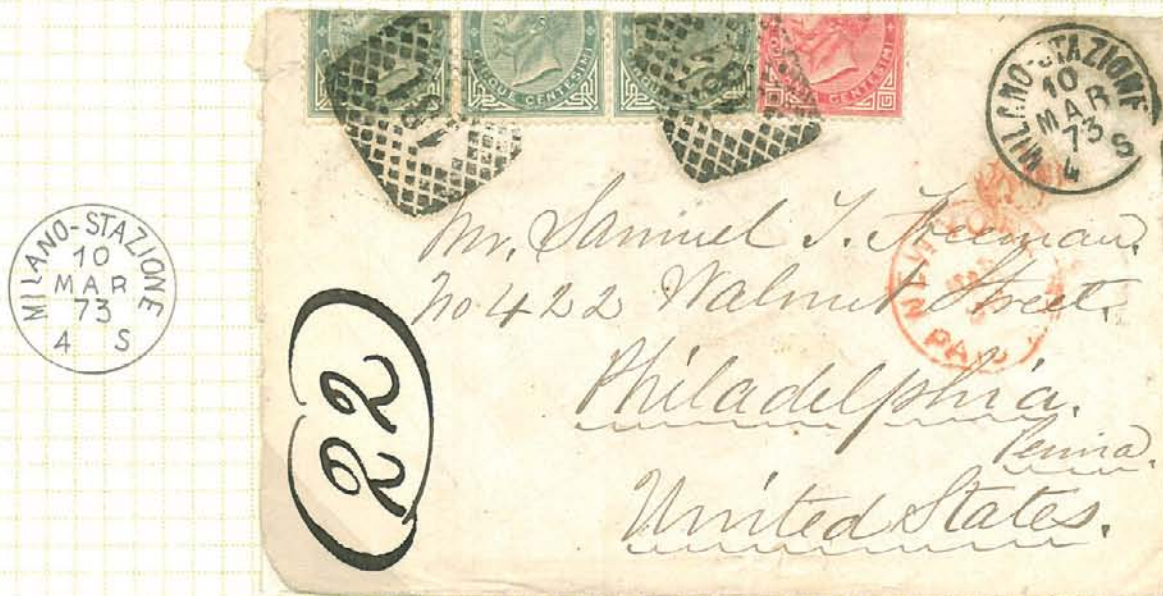 MILANO-STAZIONE
10
MAR
73
4 S
CINQUE CENTESIMI
CENTESIMI
MILANO-STAZIONE
10
MAR
73
4 S
NEW YORK
PAID
Mr. Samuel T. Freeman.
No 422 Walnut Street.
Philadelphia.
Penna.
United States.
22